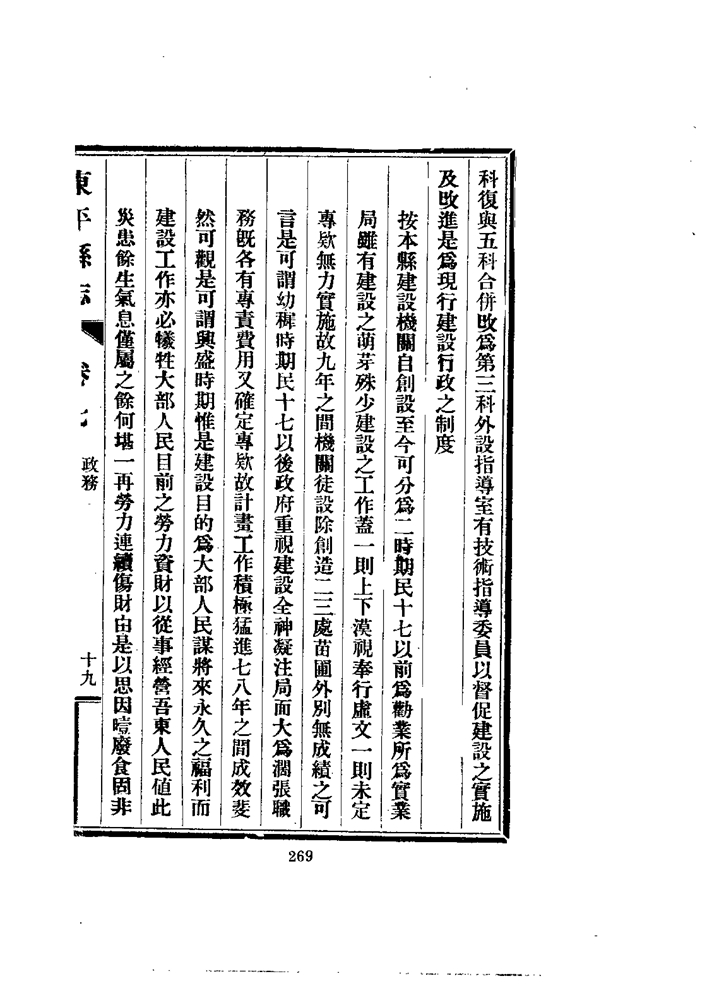 科復與五科合併改為第三科外設指導室有技術指導委員以督促建設之實施
及改進是為現行建設行政之制度
按本縣建設機關自創設至今可分為二時期民十七以前為勸業所為實業
局雖有建設之萌芽殊少建設之工作蓋一則上下漠視奉行虛文一則未定
專欵無力實施故九年之間機關徒設除創造二三處苗圃外別無成績之可
言是可謂幼穉時期民十七以後政府重視建設全神凝注局面大為濶張職
務既各有專責費用又確定專欵故計畫工作積極猛進七八年之間成效斐
然可觀是可謂興盛時期惟是建設目的為大部人民謀將來永久之福利而
建設工作亦必犧牲大部人民目前之勞力資財以從事經營吾東人民値此
災患餘生氣息僅屬之餘何堪一再勞力連續傷財由是以思因噎廢食固非
東平縣志 卷七 政務 十九
269